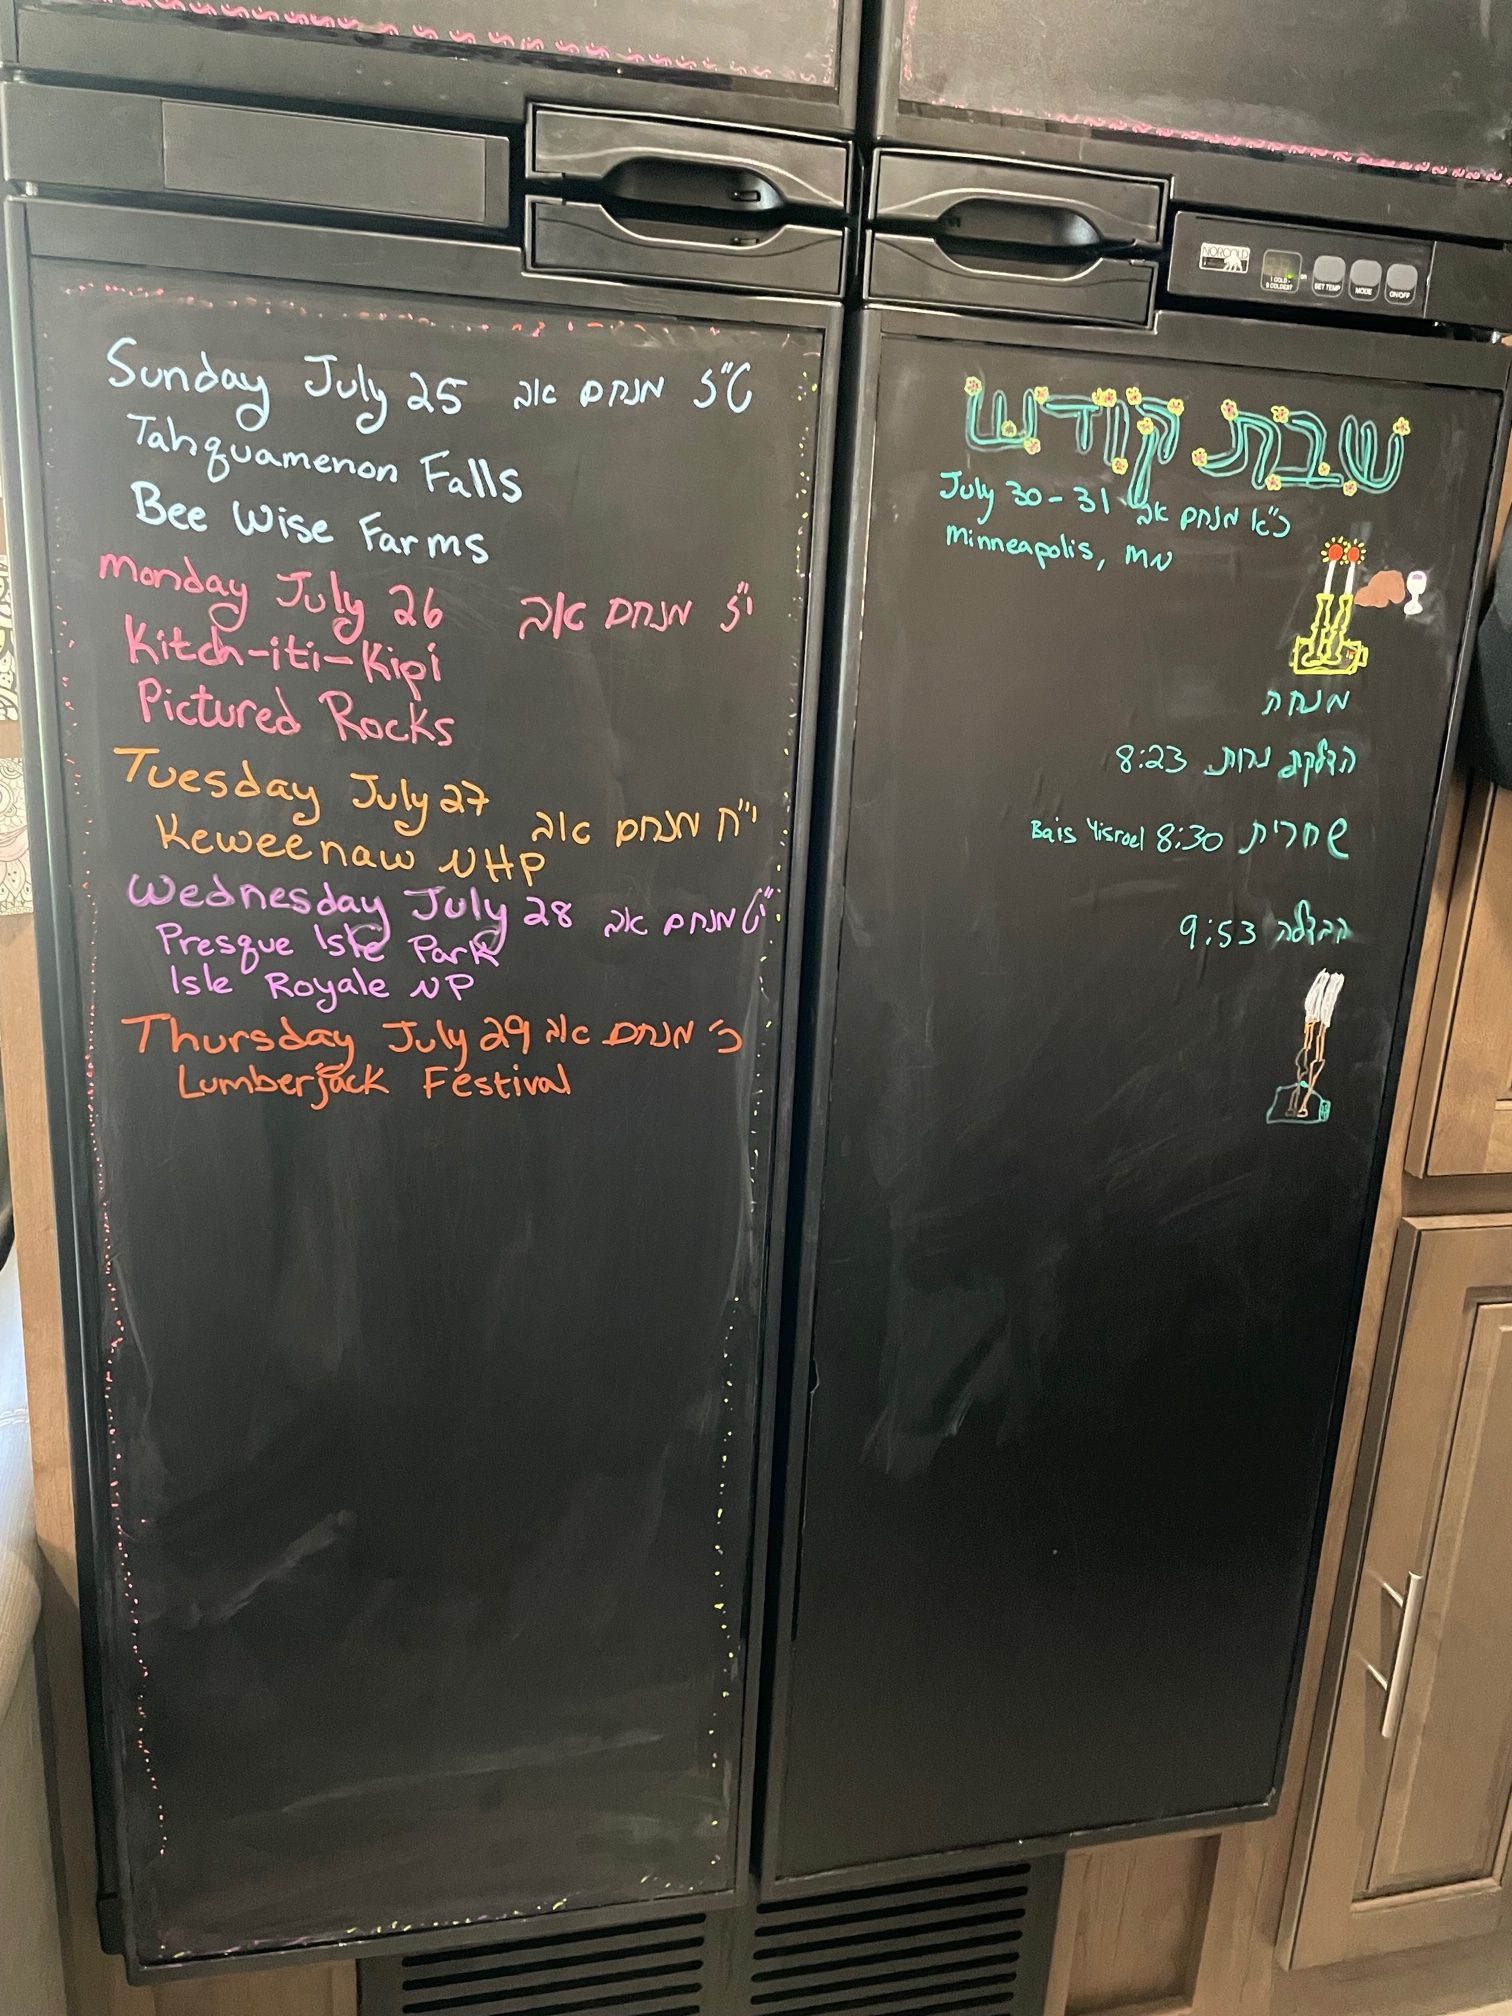 Sunday July 25 ט"ז מנחם אב
Tahquamenon Falls
Bee Wise Farms
Monday July 26 י"ז מנחם אב
Kitch-iti-Kipi
Pictured Rocks
Tuesday July 27 י"ח מנחם אב
Keweenaw NHP
Wednesday July 28 י"ט מנחם אב
Presque Isle Park
Isle Royale NP
Thursday July 29 כ' מנחם אב
Lumberjack Festival
NORCOLD
1 COLD -
9 COLDEST
on
SET TEMP
MODE
ON/OFF
שבת קודש
July 30-31 כ"א מנחם אב
Minneapolis, MN
מנחה
הדלקת נרות 8:23
שחרית 8:30 Bais Yisroel
הבדלה 9:53